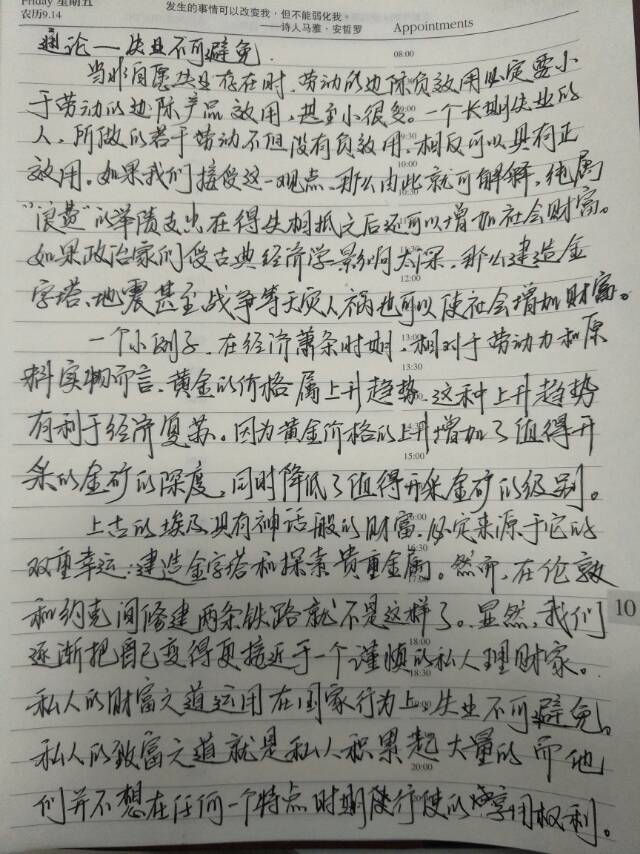 Friday 星期五
农历9.14
发生的事情可以改变我，但不能弱化我。
——诗人马雅·安哲罗
Appointments
理论一失业不可避免.
08:00
当非自愿失业存在时，劳动的边际负效用必定要小
于劳动的边际产品效用，甚至小很多。一个长期失业的
人，所做的若干劳动不但没有负效用，相反可以具有正
效用。如果我们接受这一观点，那么由此就可解释，纯属
“浪费”的举债支出在得失相抵之后还可以增加社会财富。
如果政治家们受古典经济学影响太深，那么建造金
12:00
字塔、地震甚至战争等天灾人祸也可以使社会增加财富。
13:00
一个小例子，在经济萧条时期，相对于劳动力和原
13:30
料实物而言，黄金的价格属上升趋势，这种上升趋势
有利于经济复苏。因为黄金价格的上升增加了值得开
15:00
采的金矿的深度，同时降低了值得开采金矿的级别。
上古的埃及具有神话般的财富，必定来源于它的
16:30
双重幸运：建造金字塔和探索贵重金属。然而，在伦敦
和约克间修建两条铁路就不是这样了。显然，我们
10
18:00
逐渐把自己变得更接近于一个谨慎的私人理财家。
18:30
私人的财富之道运用在国家行为上，失业不可避免。
私人的致富之道就是私人积累起大量的 而他
20:00
们并不想在任何一个特点时期使行使的 享用权利。